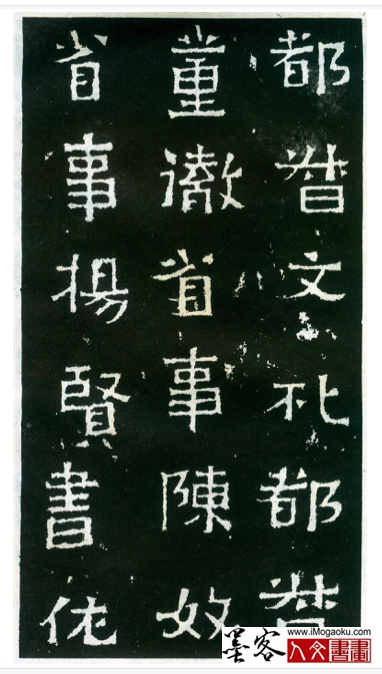 都督文礼都督
董徹省事陳奴
省事楊賢書佐
墨客
www.iMogaoku.com
人文書畫